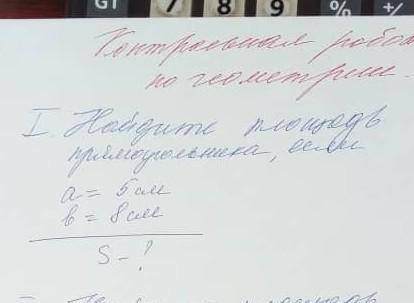 GT 7 8 9 % +/
Контрольная работ
по геометрии.
I. Найдите площадь
прямоугольника, если
a = 5 см
b = 8 см
S - ?
площадь